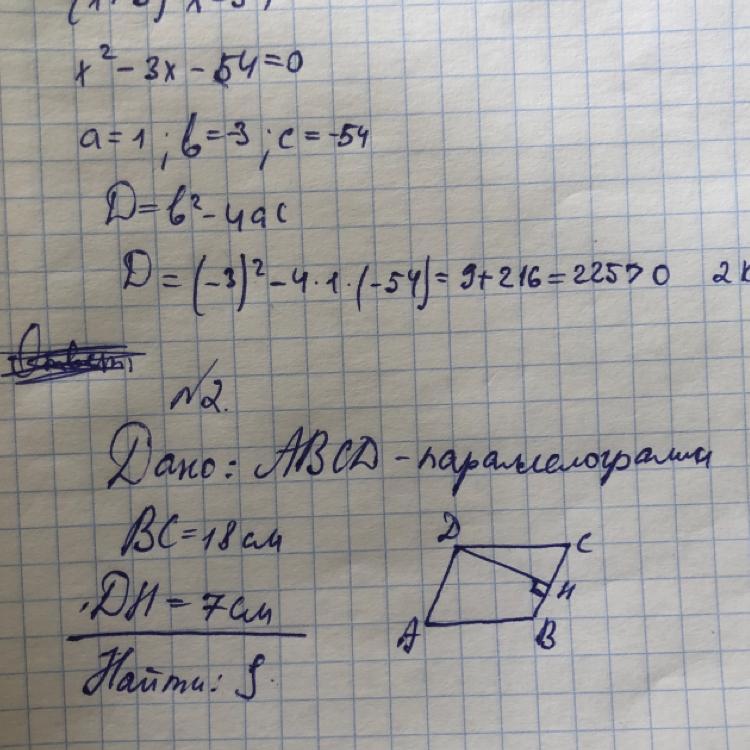 x² - 3x - 54 = 0
a = 1 ; b = -3 ; c = -54
D = b² - 4ac
D = (-3)² - 4·1·(-54) = 9 + 216 = 225 > 0 2
№2.
Дано: ABCD - параллелограмм
BC = 18 см
DH = 7 см
Найти: S.
D C
H
A B